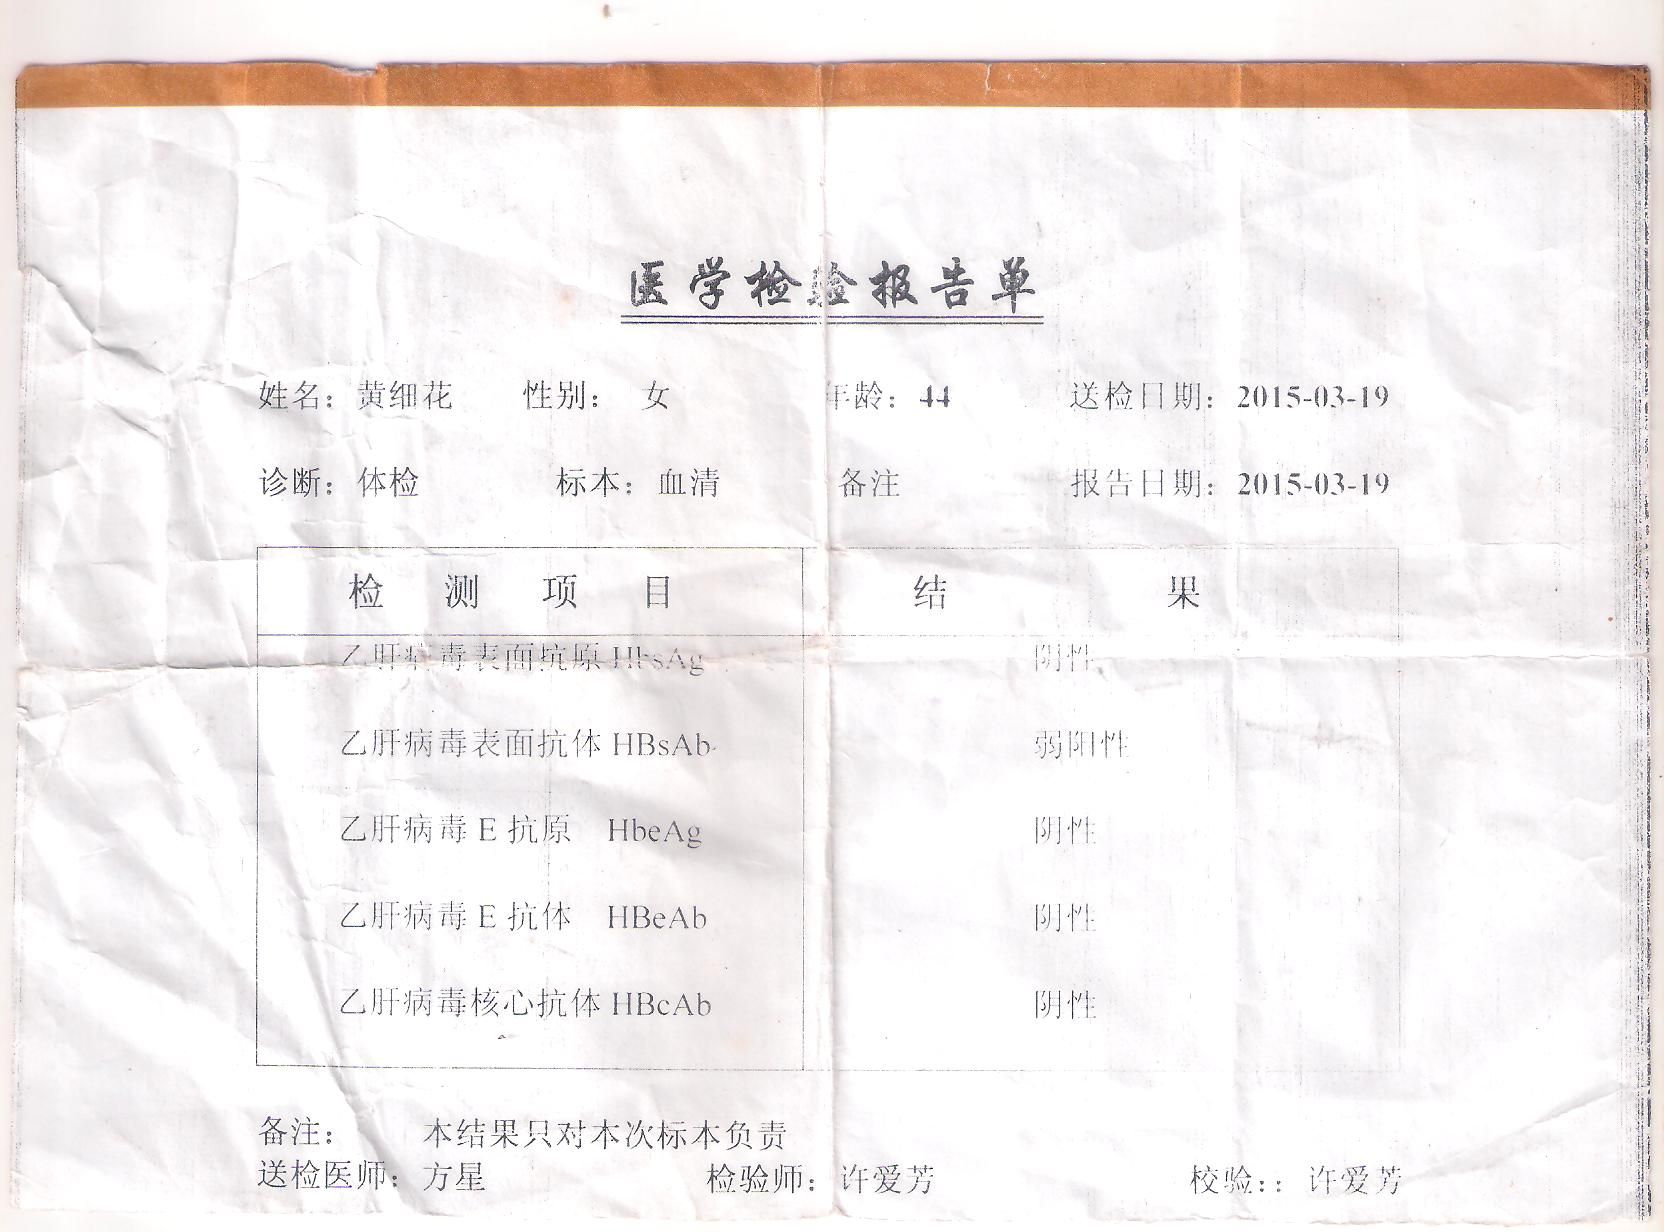 医学检验报告单
姓名：黄细花 性别： 女 年龄：44 送检日期：2015-03-19
诊断：体检 标本：血清 备注 报告日期：2015-03-19
检测项目 结果
乙肝病毒表面抗原 HbsAg 阴性
乙肝病毒表面抗体 HBsAb 弱阳性
乙肝病毒 E 抗原 HbeAg 阴性
乙肝病毒 E 抗体 HBeAb 阴性
乙肝病毒核心抗体 HBcAb 阴性
备注： 本结果只对本次标本负责
送检医师：方星 检验师：许爱芳 校验：：许爱芳